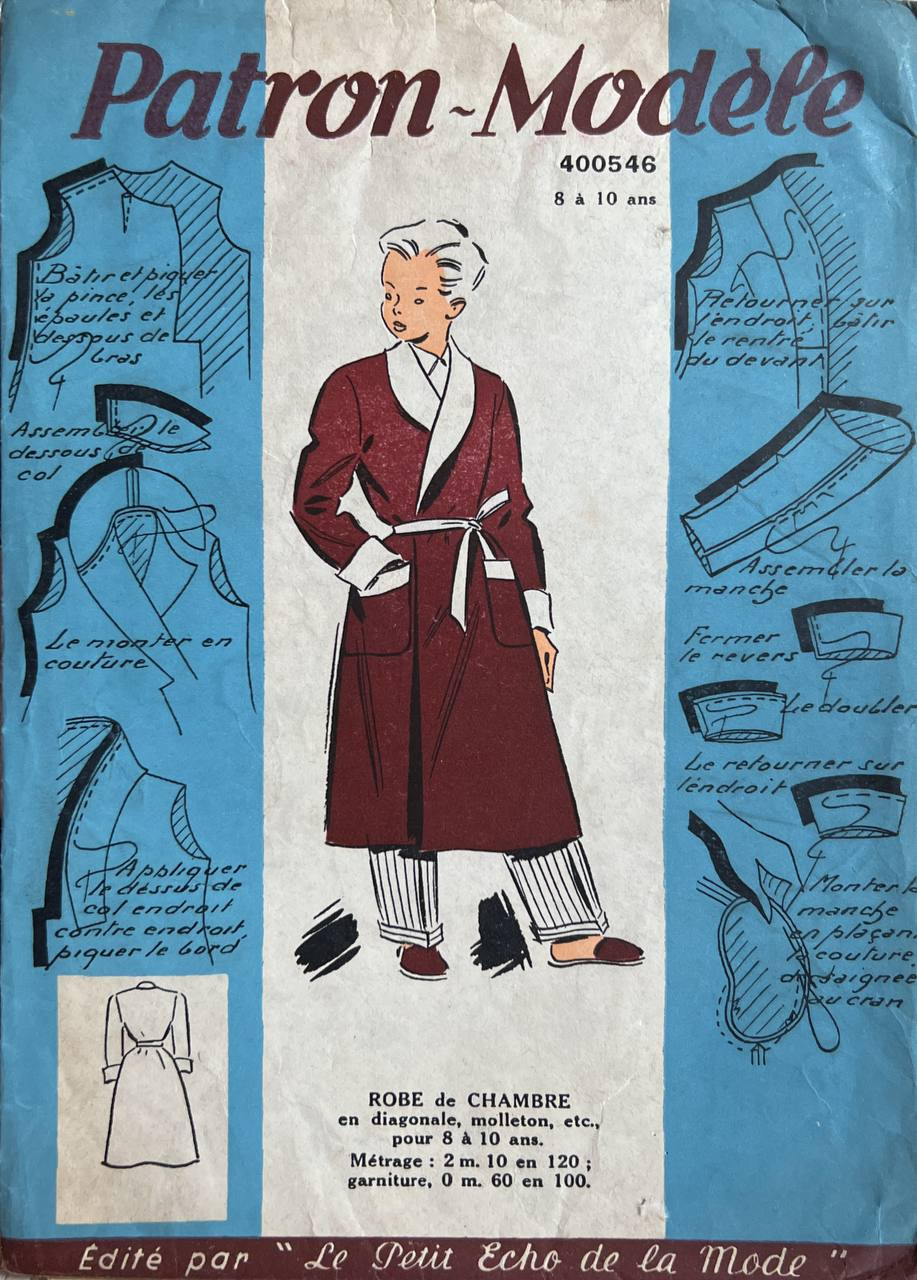 Patron-Modèle
400546
8 à 10 ans
Bâtir et piquer
la pince, les
épaules et
dessous de
bras
Assembler le
dessous de
col
Le monter en
couture
Appliquer
le dessus de
col endroit
contre endroit
piquer le bord
Retourner sur
l'endroit, bâtir
le rentré
du devant
Assembler la
manche
Fermer
le revers
Le doubler
Le retourner sur
l'endroit
Monter la
manche
en plaçant
la couture
de saignée
au cran
ROBE de CHAMBRE
en diagonale, molleton, etc.,
pour 8 à 10 ans.
Métrage : 2 m. 10 en 120 ;
garniture, 0 m. 60 en 100.
Édité par " Le Petit Echo de la Mode "